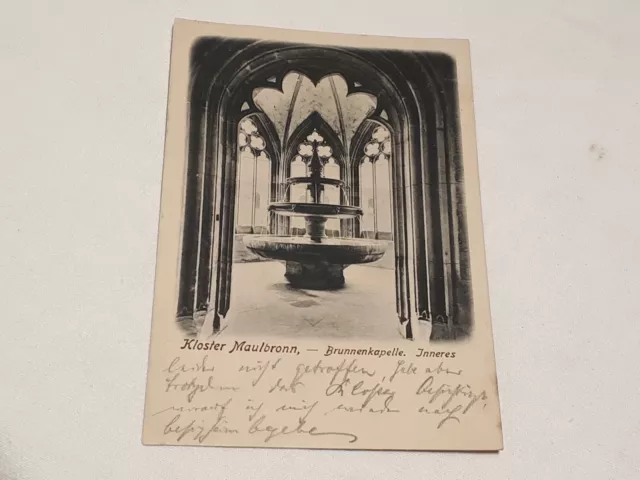 Kloster Maulbronn, — Brunnenkapelle. Inneres
leider nicht getroffen, habe aber
trotzdem das
worauf ich mich wieder nach
begebe